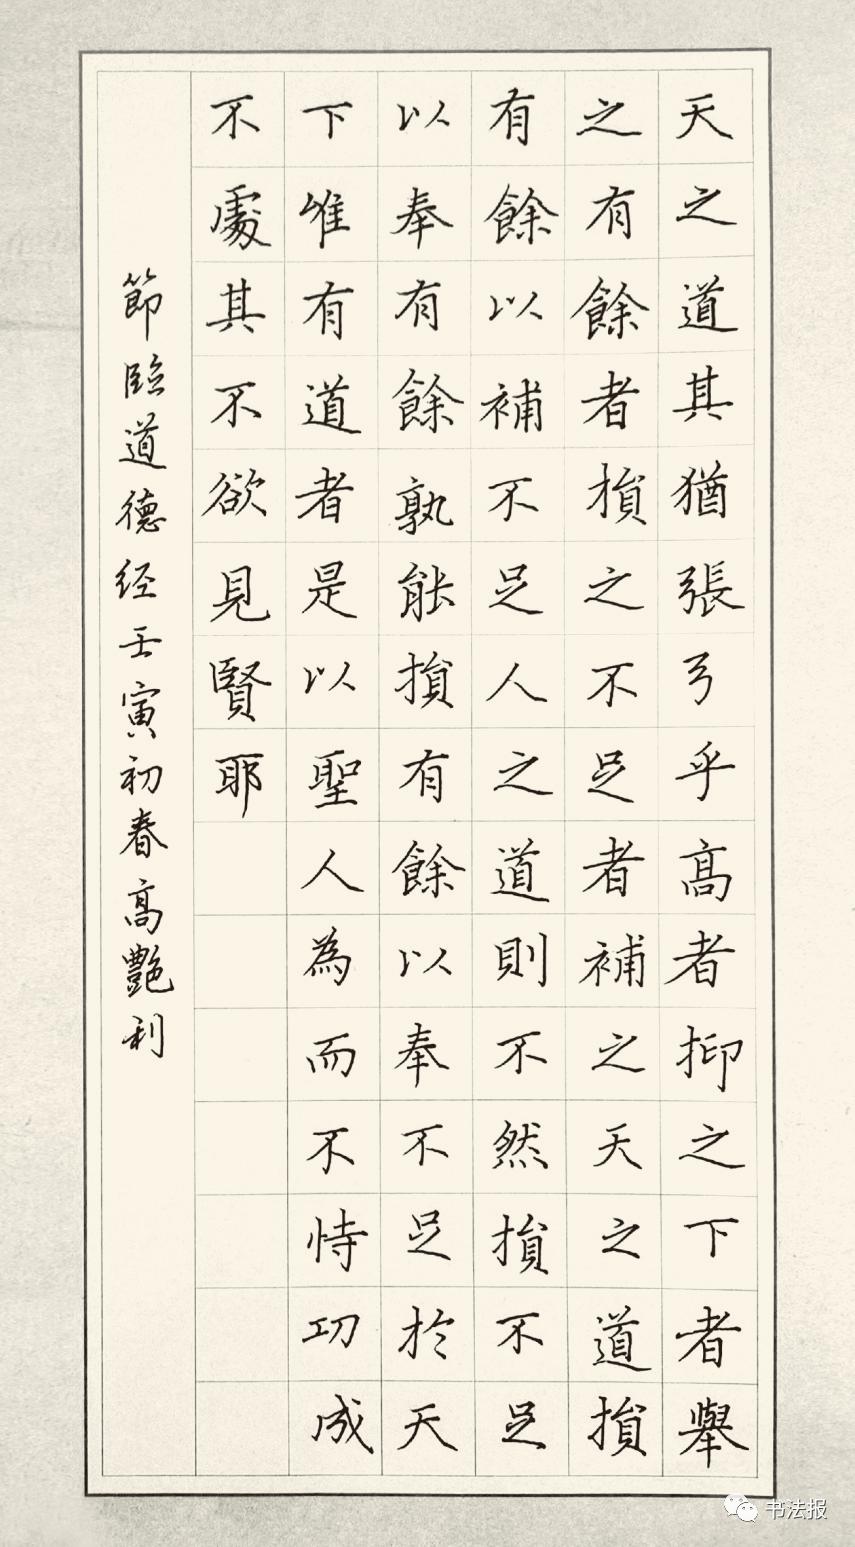 天之道其猶張弓乎高者抑之下者舉
之有餘者損之不足者補之天之道損
有餘以補不足人之道則不然損不足
以奉有餘孰能損有餘以奉不足於天
下唯有道者是以聖人為而不恃功成
不處其不欲見賢耶
節臨道德经壬寅初春高艷利
书法报